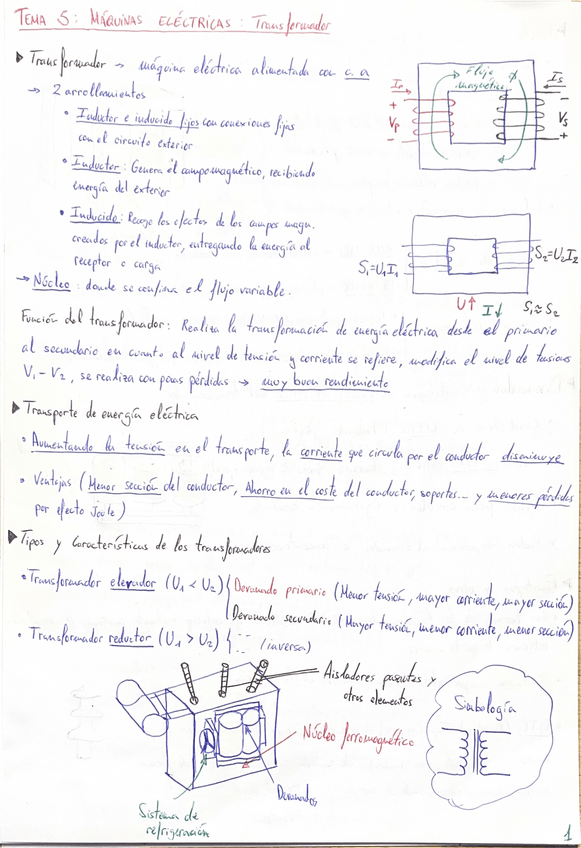 TEMA 5: MÁQUINAS ELÉCTRICAS: Transformador
Transformador → máquina eléctrica alimentada con c.a
→ 2 arrollamientos
• Inductor e inducido fijos con conexiones fijas
con el circuito exterior
• Inductor: Genera el campo magnético, recibiendo
energía del exterior
• Inducido: Recoge los efectos de los campos magn.
creados por el inductor, entregando la energía al
receptor o carga
→ Núcleo: donde se confina el flujo variable.
Flujo
magnético
Φ
Ip
+
Vp
-
Is
-
Vs
+
S1=U1I1
S2=U2I2
U↑ I↓ S1≈S2
Función del transformador: Realiza la transformación de energía eléctrica desde el primario
al secundario en cuanto al nivel de tensión y corriente se refiere, modifica el nivel de tensiones
V1-V2, se realiza con pocas pérdidas → muy buen rendimiento
Transporte de energía eléctrica
• Aumentando la tensión en el transporte, la corriente que circula por el conductor disminuye
• Ventajas (Menor sección del conductor, Ahorro en el coste del conductor, soportes... y menores pérdidas
por efecto Joule)
Tipos y características de los transformadores
• Transformador elevador (U1 < U2) { Devanado primario (Menor tensión, mayor corriente, mayor sección)
Devanado secundario (Mayor tensión, menor corriente, menor sección)
• Transformador reductor (U1 > U2) { -- (inversa)
--
Aisladores pasantes y
otros elementos
Núcleo ferromagnético
Devanados
Sistema de
refrigeración
Simbología
1